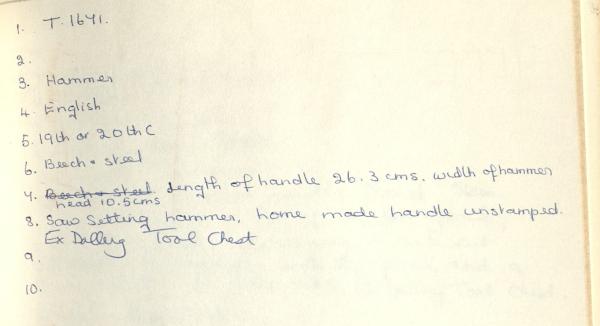 1. T.1641.
2.
3. Hammer
4. English
5. 19th or 20th C
6. Beech & steel
7. Beech & steel. Length of handle 26.3 cms. width of hammer
head 10.5 cms
8. Saw Setting hammer, home made handle unstamped.
Ex Tool Chest
9.
10.